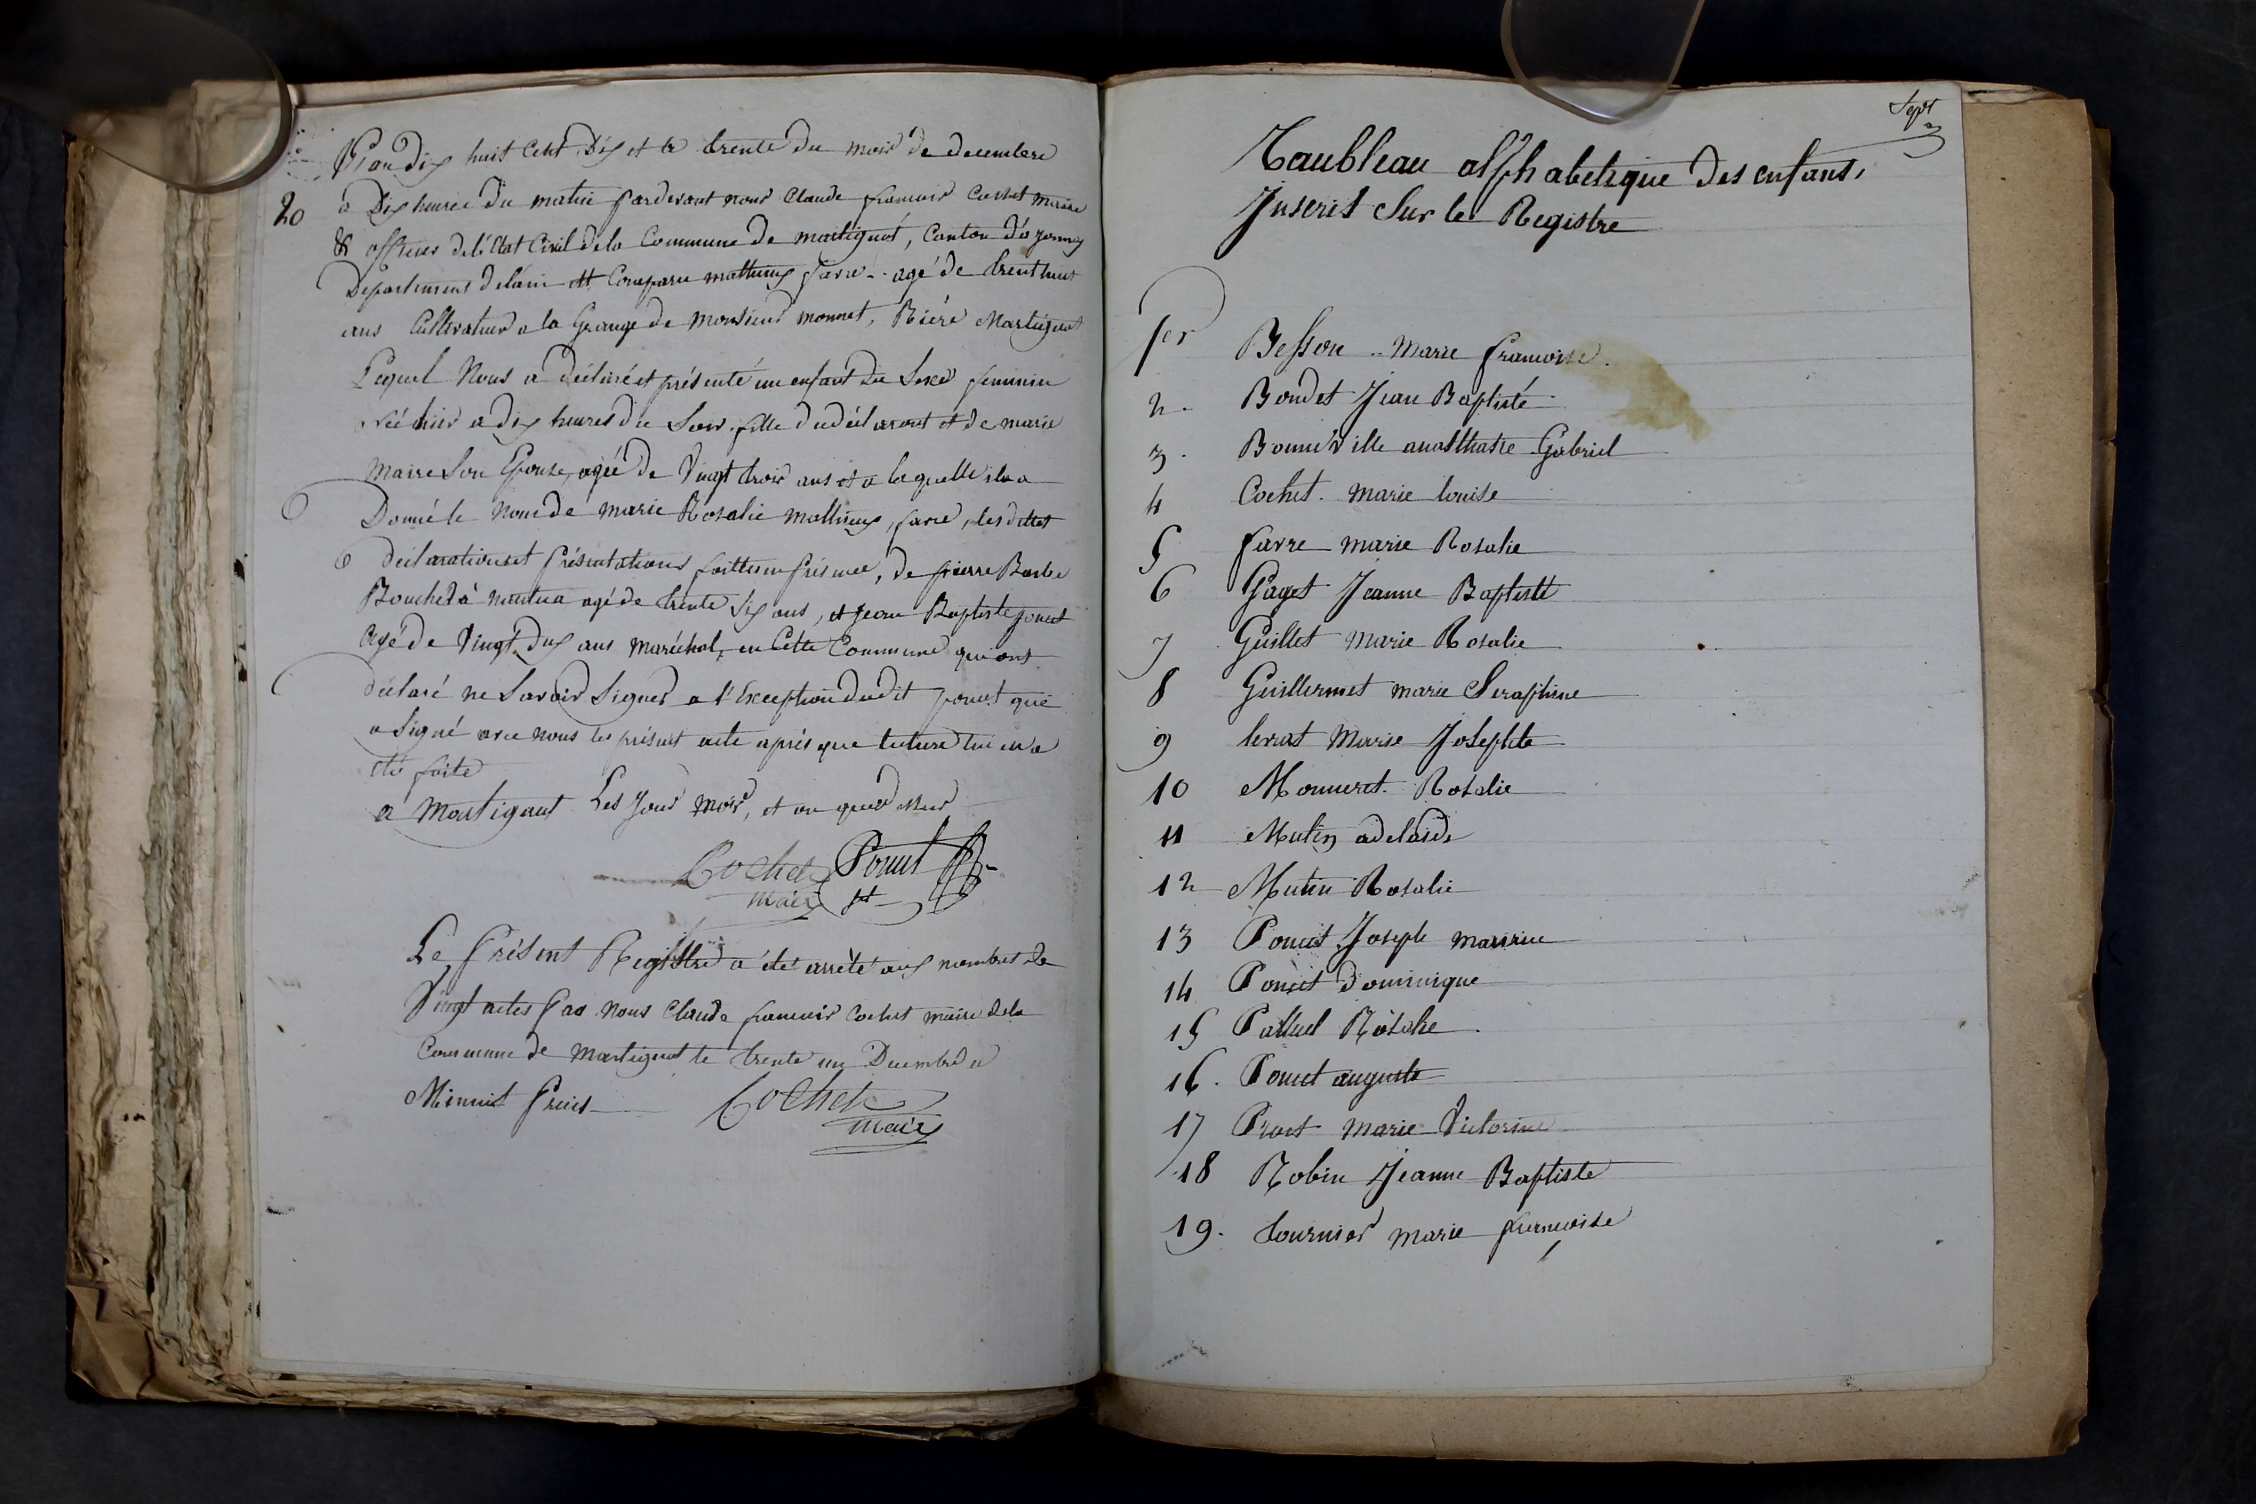 20
L'an dix huit cent dix et le trente du mois de decembre
a dix heures du matin pardevant nous Claude françois Cochet maire
& officier de l'état Civil de la Commune de martignat, Canton d'oyonnax
Departement de l'ain est Comparu mathieux favre agé de trent huit
ans Cultivateur a la Grange de Monsieur monnet, Rière Martignat
Lequel Nous a déclaré et présenté un enfant du Sexe feminin
née hier a dix heures du Soir fille du déclarant et de marie
Maire Son Epouse, agée de Vingt trois ans et a laquelle il a
Donné le nom de marie Rosalie mathieux, favre, les dittes
declaration et présentations faitte en présence, de pierre Barbe
Boucher à nantua agé de trente Six ans, et jean Baptiste poncet
agé de Vingt Dux ans Maréchal, en Cette Commune qui ont
déclaré ne Savoir Signer a l'Exception dudit poncet que
a Signé avec nous le présent acte après que lecture lui en a
été faite
a Martignat Les Jour mois, et an que dessus
Cochet Poncet
Maire
Le présent Registre a été arrèté aux nombre de
Vingt actes Par nous Claude françois Cochet maire de la
Commune de Martignat le trente un Decembre a
Minuit precis
Cochet
Maire
Sept
Taubleau alphabetique des enfans,
Inscrit Sur le Registre
1er Besson Marie francoise
2. Boudet Jean Baptisté
3. Bonneville anasthasie Gabriel
4 Cochet. Marie louise
5 favre marie Rosalie
6 Gaget Jeanne Baptiste
7 Guillet Marie Rosalie
8 Guillermet marie Seraphine
9 levrat Marie Josephte
10 Monneret. Rosalie
11 Mutin adelaide
12 Mutin Rosalie
13 Poncet Joseph
14 Poncet dominique
15 Palluel Rosalie
16. Poncet auguste
17 Prost Marie Victorine
18 Robin Jeanne Baptiste
19. tournier marie francoise